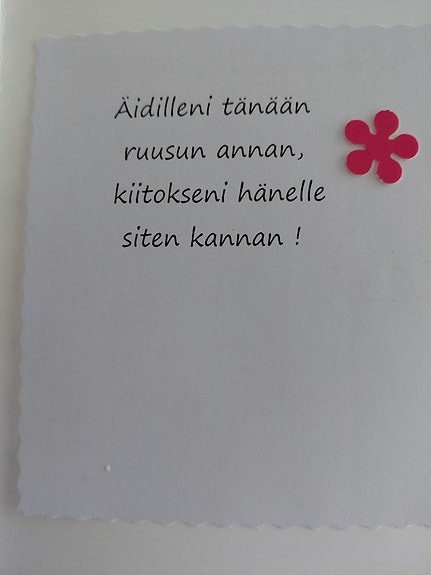 Äidilleni tänään
ruusun annan,
kiitokseni hänelle
siten kannan !